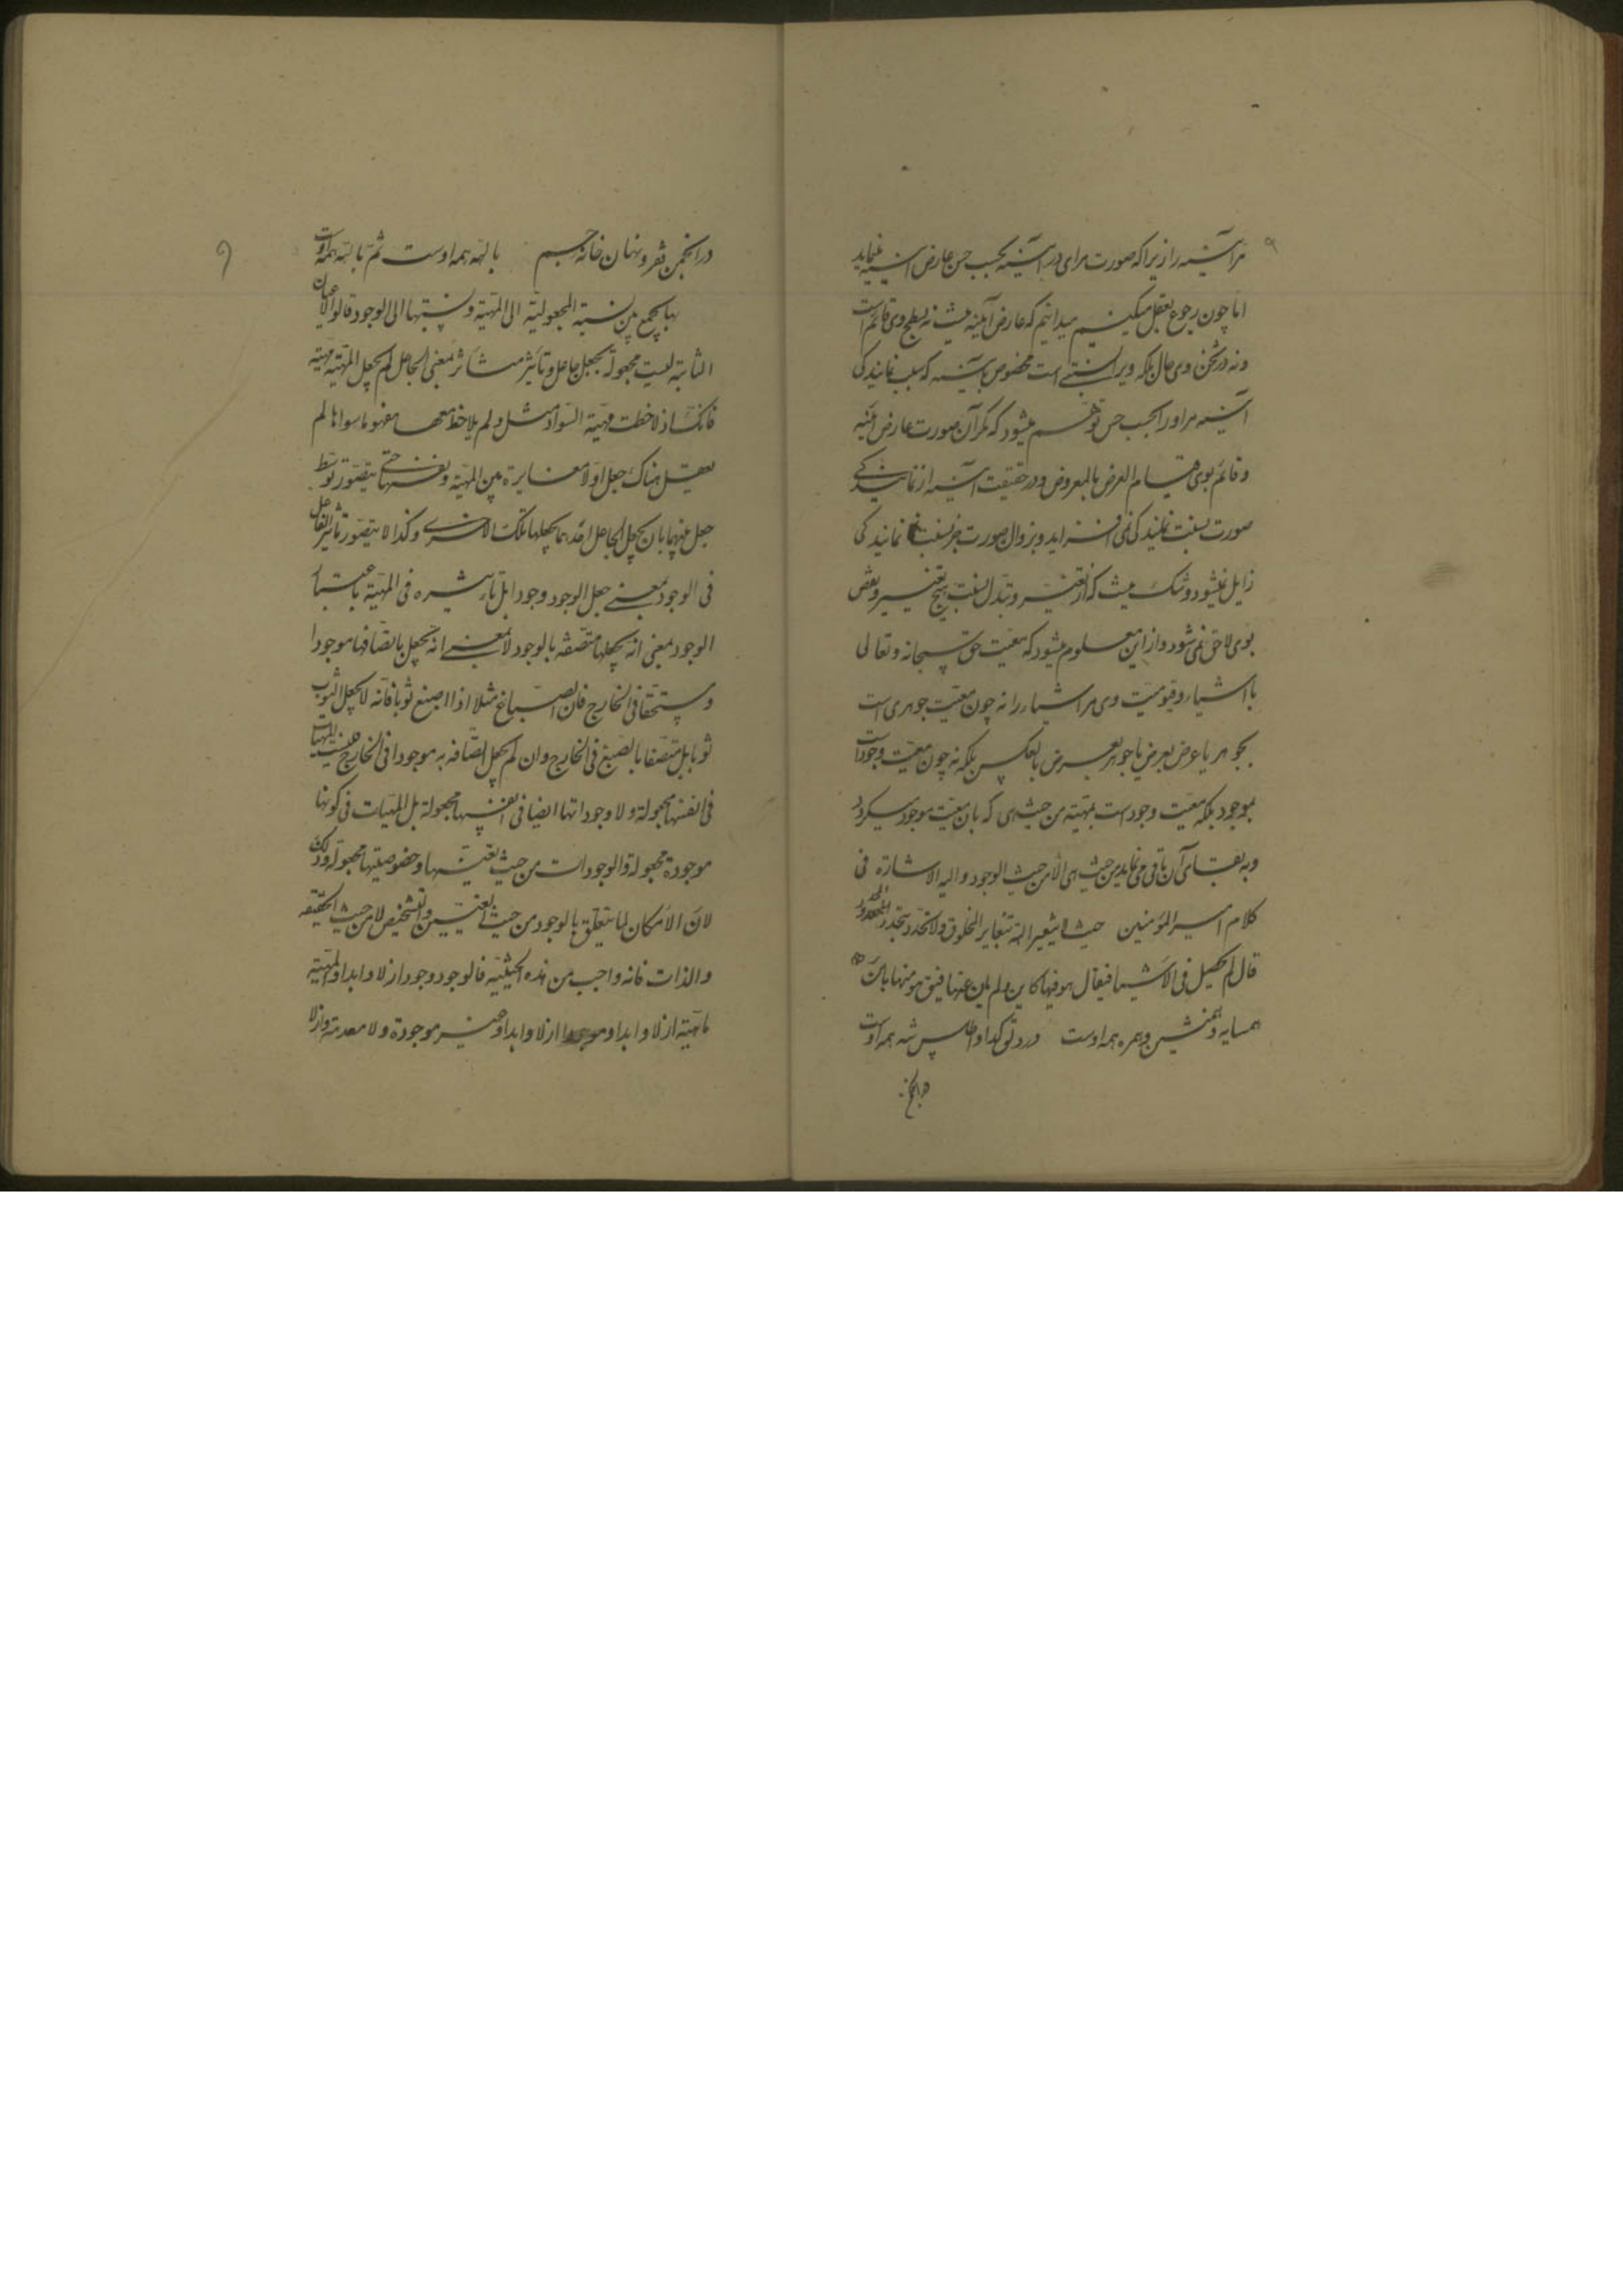 مر آینه را زیرا که صورت مرای در آینه بحسب حس عارض آینه مینماید
اما چون رجوع بعقل میکنیم میدانیم که عارض آینه نیست نه بسطح وی قائم است
و نه در ثخن وی حال بلکه ویرا نسبتی است مخصوص بآینه که سبب نمایندگی
آینه مر او را بحسب حس توهم میشود که مگر آن صورت عارض آینه
و قائم بوی قیام العرض بالمعروض و در حقیقت آینه از نمایندگی
صورت بنسبت نمایندگی نمی افزاید و بزوال صورت جز نسبت نمایندگی
زایل نمیشود و شک نیست که از تغیر و تبدل نسبت هیچ تغییر و نقص
بوی لاحق نمی شود و از این معلوم میشود که معیت حق سبحانه و تعالی
با اشیاء و قیومیت وی مر اشیاء را نه چون معیت جوهری است
بجوهر یا عرض بعرض یا جوهر بعرض یا بعکس بلکه نه چون معیت وجود است
بموجود بلکه معیت وجود است بمهیته من حیث هی که بان معیت موجود میگردد
و به بقای آن باقی می نماید من حیث هی لا من حیث الوجود و الیه الاشاره فی
کلام امیر المؤمنین حیث لا یتغیر الله بتغایر المخلوق و لا یتحدد بتحدد المحدود
قال لم یحلل فی الاشیاء فیقال هو فیها کاین و لم یبن عنها فیق هو منها باین
همسایه و همنشین و همره همه اوست در دلق گدا و اطلس شه همه اوست
در انجمن
در انجمن فرق و نهان خانه جمع بالله همه اوست ثم بالله همه اوست
بها یجمع بین نسبته المجعولیة الی المهیة و نسبتها الی الوجود قالوا الاعیان
الثابتة لیست مجعولة بجعل جاعل و تأثیر مؤثر بمعنی الجاعل لم یجعل المهیة مهیة
فانک اذ لاحظت مهیة السواد مثلا و لم یلاحظ معها مفهوما سواها لم
یعقل هناک جعل اذ لا مغایرة بین المهیة و نفسها حتی یتصور توسط
جعل بینهما بان یجعل الجاعل احدهما تلک الاخری و کذا لا یتصور تأثیر الفاعل
فی الوجود بمعنی جعل الوجود وجودا بل تأثیره فی المهیة باعتبار
الوجود بمعنی انه یجعلها متصفة بالوجود لا بمعنی انه یجعل اتصافها موجودا
و متحققا فی الخارج فان الصباغ مثلا اذا صبغ ثوبا فانه لا یجعل الثوب
ثوبا بل متصفا بالصبغ فی الخارج و ان لم یجعل اتصافه به موجودا فی الخارج فلیست المهیات
فی انفسها مجعولة و لا وجوداتها ایضا فی انفسها مجعولة بل المهیات فی کونها
موجودة مجعولة و الوجودات من حیث تعینها و خصوصیتها مجعولة و ذلک
لان الامکان انما یتعلق بالوجود من حیث التعیین و التشخص لا من حیث الحقیقة
و الذات فانه واجب من هذه الحیثیة فالوجود وجود ازلا و ابدا و المهیة
ماهیة ازلا و ابدا و موجودا ازلا و ابدا و غیر موجودة و لا معدمة ازلا